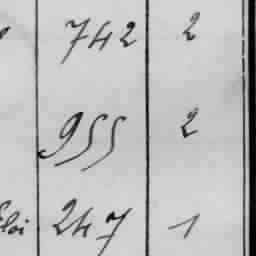 742 2
955 2
247 1